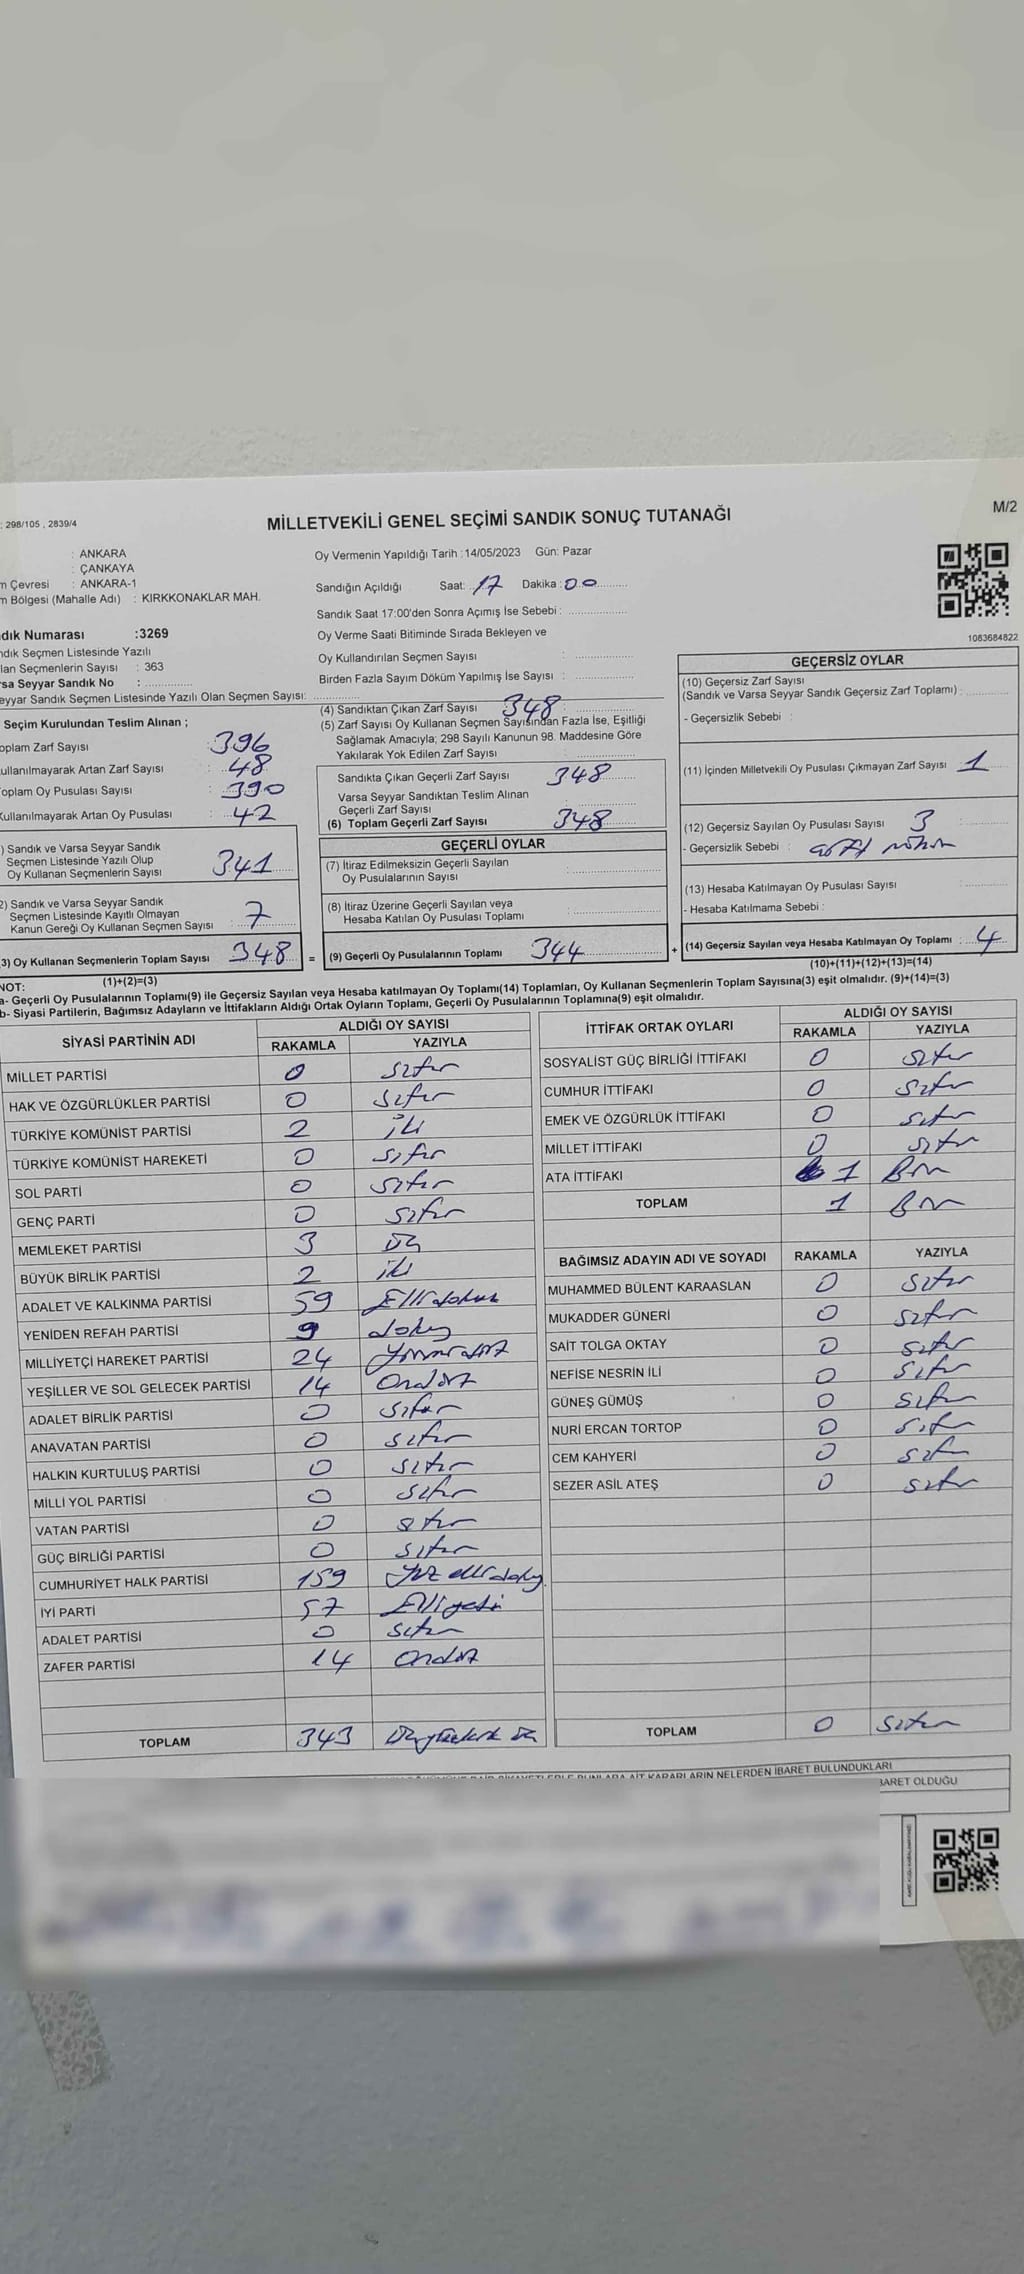 : 298/105 , 2839/4
M/2
MİLLETVEKİLİ GENEL SEÇİMİ SANDIK SONUÇ TUTANAĞI
: ANKARA
: ÇANKAYA
m Çevresi : ANKARA-1
m Bölgesi (Mahalle Adı) : KIRKKONAKLAR MAH.
dık Numarası :3269
ndık Seçmen Listesinde Yazılı
lan Seçmenlerin Sayısı : 363
rsa Seyyar Sandık No :
eyyar Sandık Seçmen Listesinde Yazılı Olan Seçmen Sayısı:
Oy Vermenin Yapıldığı Tarih :14/05/2023 Gün: Pazar
Sandığın Açıldığı Saat: 17 Dakika : 00
Sandık Saat 17:00'den Sonra Açımış İse Sebebi :
Oy Verme Saati Bitiminde Sırada Bekleyen ve
Oy Kullandırılan Seçmen Sayısı :
Birden Fazla Sayım Döküm Yapılmış İse Sayısı :
1083684822
Seçim Kurulundan Teslim Alınan ;
oplam Zarf Sayısı : 396
ullanılmayarak Artan Zarf Sayısı : 48
oplam Oy Pusulası Sayısı : 390
ullanılmayarak Artan Oy Pusulası : 42
) Sandık ve Varsa Seyyar Sandık
Seçmen Listesinde Yazılı Olup
Oy Kullanan Seçmenlerin Sayısı : 341
2) Sandık ve Varsa Seyyar Sandık
Seçmen Listesinde Kayıtlı Olmayan
Kanun Gereği Oy Kullanan Seçmen Sayısı : 7
3) Oy Kullanan Seçmenlerin Toplam Sayısı : 348
(1)+(2)=(3)
(4) Sandıktan Çıkan Zarf Sayısı : 348
(5) Zarf Sayısı Oy Kullanan Seçmen Sayısından Fazla İse, Eşitliği
Sağlamak Amacıyla; 298 Sayılı Kanunun 98. Maddesine Göre
Yakılarak Yok Edilen Zarf Sayısı :
Sandıkta Çıkan Geçerli Zarf Sayısı : 348
Varsa Seyyar Sandıktan Teslim Alınan
Geçerli Zarf Sayısı :
(6) Toplam Geçerli Zarf Sayısı : 348
GEÇERLİ OYLAR
(7) İtiraz Edilmeksizin Geçerli Sayılan
Oy Pusulalarının Sayısı :
(8) İtiraz Üzerine Geçerli Sayılan veya
Hesaba Katılan Oy Pusulası Toplamı :
= (9) Geçerli Oy Pusulalarının Toplamı : 344 +
GEÇERSİZ OYLAR
(10) Geçersiz Zarf Sayısı
(Sandık ve Varsa Seyyar Sandık Geçersiz Zarf Toplamı) :
- Geçersizlik Sebebi :
(11) İçinden Milletvekili Oy Pusulası Çıkmayan Zarf Sayısı : 1
(12) Geçersiz Sayılan Oy Pusulası Sayısı : 3
- Geçersizlik Sebebi :
(13) Hesaba Katılmayan Oy Pusulası Sayısı :
- Hesaba Katılmama Sebebi :
(14) Geçersiz Sayılan veya Hesaba Katılmayan Oy Toplamı : 4
(10)+(11)+(12)+(13)=(14)
NOT:
a- Geçerli Oy Pusulalarının Toplamı(9) ile Geçersiz Sayılan veya Hesaba katılmayan Oy Toplamı(14) Toplamları, Oy Kullanan Seçmenlerin Toplam Sayısına(3) eşit olmalıdır. (9)+(14)=(3)
b- Siyasi Partilerin, Bağımsız Adayların ve İttifakların Aldığı Ortak Oyların Toplamı, Geçerli Oy Pusulalarının Toplamına(9) eşit olmalıdır.
SİYASİ PARTİNİN ADI
ALDIĞI OY SAYISI
RAKAMLA YAZIYLA
MİLLET PARTİSİ 0 sıfır
HAK VE ÖZGÜRLÜKLER PARTİSİ 0 sıfır
TÜRKİYE KOMÜNİST PARTİSİ 2 iki
TÜRKİYE KOMÜNİST HAREKETİ 0 sıfır
SOL PARTİ 0 sıfır
GENÇ PARTİ 0 sıfır
MEMLEKET PARTİSİ 3 üç
BÜYÜK BİRLİK PARTİSİ 2 iki
ADALET VE KALKINMA PARTİSİ 59 Ellidokuz
YENİDEN REFAH PARTİSİ 9 dokuz
MİLLİYETÇİ HAREKET PARTİSİ 24 yirmidört
YEŞİLLER VE SOL GELECEK PARTİSİ 14 Ondört
ADALET BİRLİK PARTİSİ 0 sıfır
ANAVATAN PARTİSİ 0 sıfır
HALKIN KURTULUŞ PARTİSİ 0 sıfır
MİLLİ YOL PARTİSİ 0 sıfır
VATAN PARTİSİ 0 sıfır
GÜÇ BİRLİĞİ PARTİSİ 0 sıfır
CUMHURİYET HALK PARTİSİ 159 yüz ellidokuz
İYİ PARTİ 57 Elliyedi
ADALET PARTİSİ 0 sıfır
ZAFER PARTİSİ 14 Ondört
TOPLAM 343 Üçyüzkırk Üç
İTTİFAK ORTAK OYLARI
ALDIĞI OY SAYISI
RAKAMLA YAZIYLA
SOSYALİST GÜÇ BİRLİĞİ İTTİFAKI 0 sıfır
CUMHUR İTTİFAKI 0 sıfır
EMEK VE ÖZGÜRLÜK İTTİFAKI 0 sıfır
MİLLET İTTİFAKI 0 sıfır
ATA İTTİFAKI 1 Bir
TOPLAM 1 Bir
BAĞIMSIZ ADAYIN ADI VE SOYADI RAKAMLA YAZIYLA
MUHAMMED BÜLENT KARAASLAN 0 sıfır
MUKADDER GÜNERİ 0 sıfır
SAİT TOLGA OKTAY 0 sıfır
NEFİSE NESRİN İLİ 0 sıfır
GÜNEŞ GÜMÜŞ 0 sıfır
NURİ ERCAN TORTOP 0 sıfır
CEM KAHYERİ 0 sıfır
SEZER ASİL ATEŞ 0 sıfır
TOPLAM 0 sıfır
KARARLARIN NELERDEN İBARET BULUNDUKLARI
BARET OLDUĞU